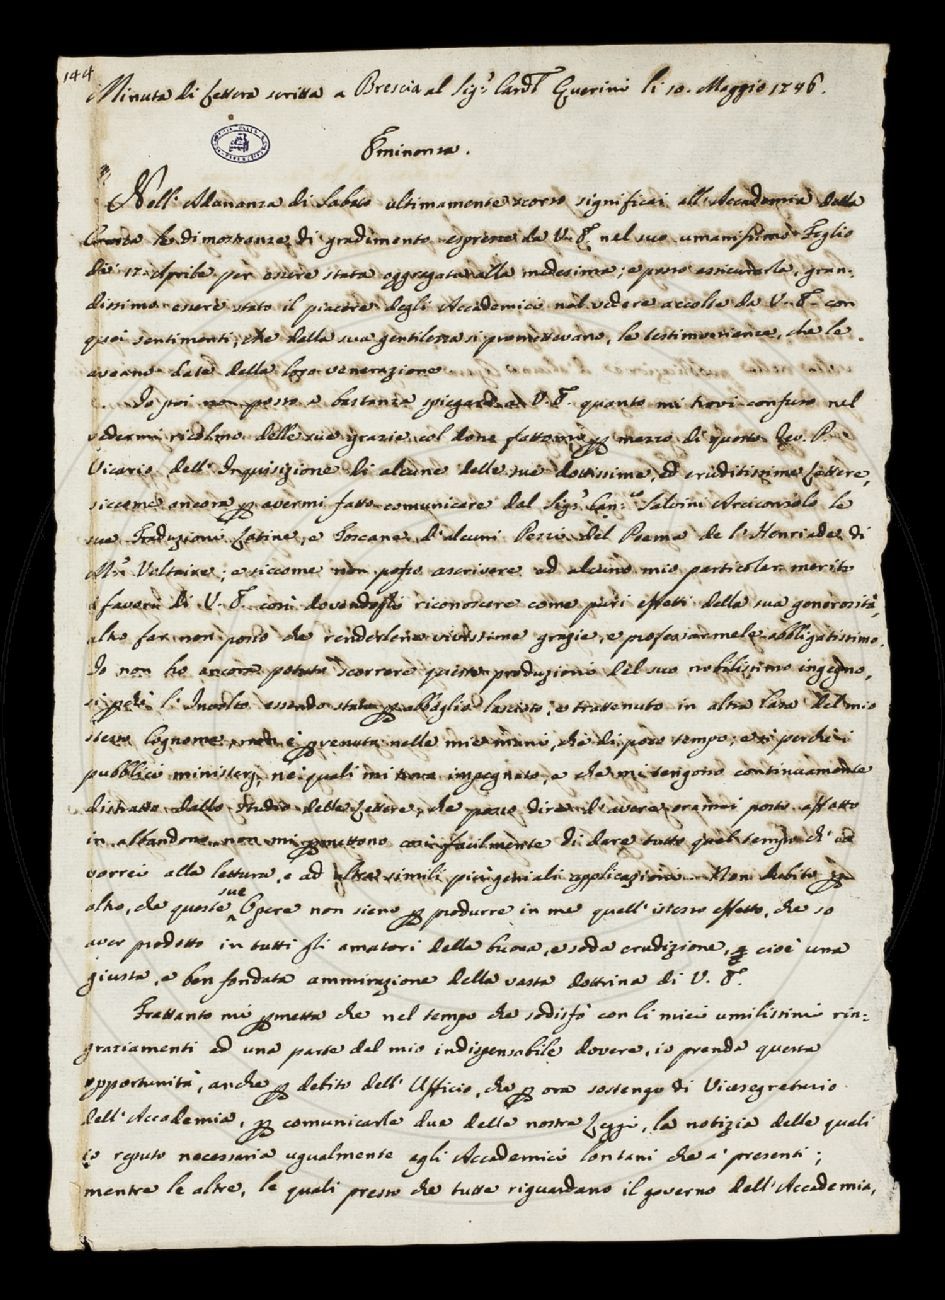 144
Minuta di Lettera scritta a Brescia al Sig.r Card.l Querini li 10. Maggio 1746.
Eminenza.
Nell'Adunanza di Sabato ultimamente scorso significai all'Accademia della
Crusca le dimostranze di gradimento espresse da V. E. nel suo umanissimo Foglio
de' 12. Aprile per essere stata aggregata alla medesima; e posso assicurarla, gran-
dissimo essere stato il piacere degli Accademici nel vedere accolte da V. E. con
quei sentimenti, che della sua gentilezza si promettevano, le testimonianze, che le
aveano date della loro venerazione.
Io poi non posso a bastanza spiegare a V. E. quanto mi trovi confuso nel
vedermi ricolmo delle sue grazie col dono fattomi per mezzo di questo Rev. P.
Vicario dell'Inquisizione di alcune delle sue dottissime, ed eruditissime Lettere,
siccome ancora per avermi fatto comunicare dal Sig.r Can.co Salvini Arciconsolo le
sue Traduzioni Latine, e Toscane d'alcuni Pezzi del Poema de l'Henriade di
M.r Voltaire; e siccome non posso ascrivere ad alcuno mio particolar merito
i favori di V. E. così dovendogli riconoscere come puri effetti della sua generosità,
altro far non posso che rendergliene vivissime grazie, e professarmele obbligatissimo.
Io non ho ancora potuto scorrere queste produzioni del suo nobilissimo ingegno,
sì perchè l'Involto essendo stato per abbaglio lasciato, e trattenuto in altra Casa del mio
stesso Cognome, non è pervenuto nelle mie mani, che di poco tempo; e sì perchè i
pubblici ministerj, nei quali mi trovo impegnato, e che mi tengono continuamente
distratto dallo studio delle Lettere, che posso dire d'avere oramai poste affatto
in abbandono, non mi permettono così facilmente di dare tutto quel tempo ch'io
vorrei alla lettura, e ad altre simili più geniali applicazioni. Non dubito per
altro, che queste sue Opere non sieno per produrre in me quell'istesso effetto, che so
aver prodotto in tutti gli amatori della buona, e soda erudizione, cioè una
giusta, e ben fondata ammirazione della vasta dottrina di V. E.
Frattanto mi permetta che nel tempo che sodisfò con li miei umilissimi rin-
graziamenti ad una parte del mio indispensabile dovere, io prenda questa
opportunità, anche per debito dell'Uffizio, che per ora sostengo di Vicesegretario
dell'Accademia, per comunicarle due delle nostre Leggi, la notizia delle quali
io reputo necessaria ugualmente agli Accademici lontani che a' presenti;
mentre le altre, le quali presso che tutte riguardano il governo dell'Accademia,